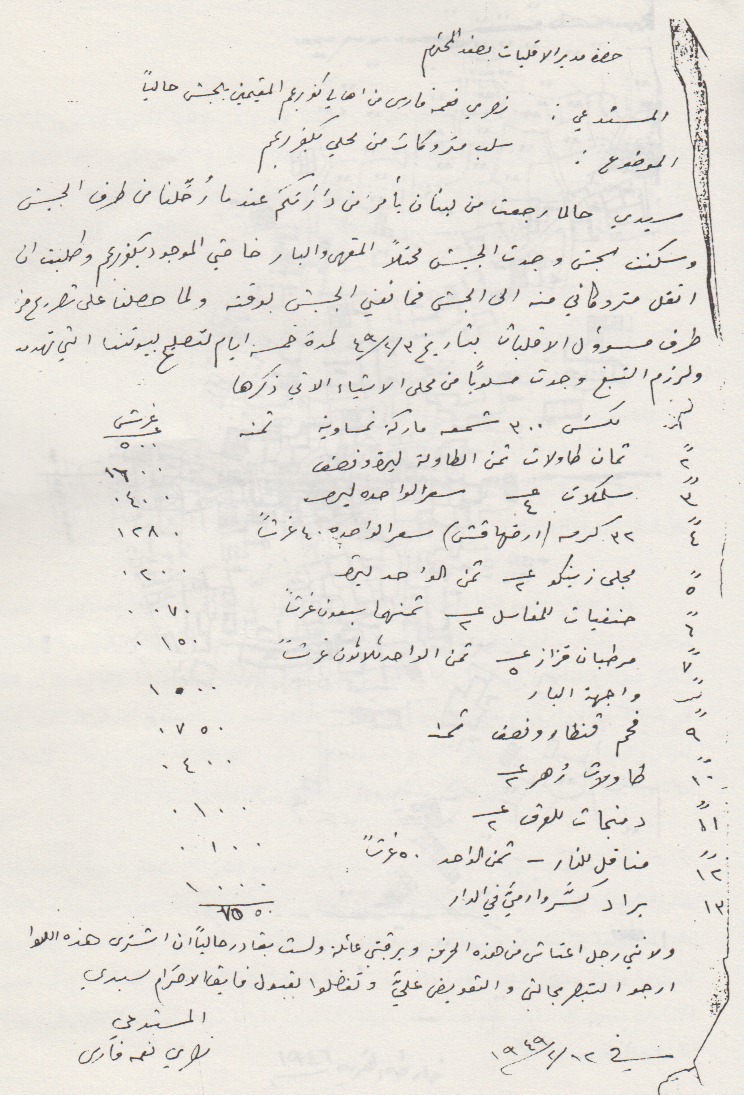 حضرة مدير الاقليات بصفد المحترم
المستدعي : نصري نعمه فارس من اهالي كفربرعم المقيمين بالجش حالياً
الموضوع : سلب متروكات من محلي بكفربرعم
سيدي حالما رجعت من لبنان بأمر من دائرتكم عندما رُحّلنا من طرف الجيش
وسكنت الجش وجدت الجيش محتلاً المقهى والبار خاصتي الموجود بكفربرعم وطلبت ان
انقل متروكاتي منه الى الجش فمانعني الجيش بوقته ولما حصلنا على تصريح من
طرف مسؤول الاقليات بتاريخ ٤٩/٢/٣ لمدة خمسة ايام لتصليح بيوتنا التي تهدمت
ولزم التبغ وجدت مسلوباً من محلي الاشياء الاتي ذكرها
غرش
لكس ٣٠٠ شمعه ماركة نمساوية ثمنه ٥٠٠
٢ ثمان طاولات ثمن الطاولة ليرة ونصف ١٦٠٠
٣ سلمكلات عـ ٤ سعر الواحده ليره ٠٤٠٠
٤ ٣٢ كرسه (ارضها قش) سعر الواحده ٤٠ غرشاً ١٢٨٠
٥ مجلى زينكو عـ ٢ ثمن الواحد ليره ٠٢٠٠
٦ حنفيات للمغاسل عـ ٢ ثمنهما سبعون غرشاً ٠٠٧٠
٧ مرطبان قزاز عـ ٥ ثمن الواحد ثلاثون غرشاً ٠١٥٠
واجهة البار ١٥٠٠
٩ فحم قنطار ونصف ثمنه ٠٧٥٠
١٠ طاولات زهر عـ ٢ ٠٤٠٠
١١ دمنجات للعرق عـ ٢ ٠١٠٠
١٢ مناقل للنار – ثمن الواحد ٥٠ غرشاً ٠١٠٠
١٣ براد كسّروا رميّ في الدار ١٠٠٠
٧٥٥٠
ولانني رجل اعتاش من هذه الحرفة وبرقبتي عائلة ولست بقادر حالياً ان اشتري هذه اللوا
ارجو التبصر بحالتي والتعويض عليّ وتفضلوا بقبول فايق الاحترام سيدي
المستدعي
في ١٩٤٩/٢/١٢ نصري نعمه فارس